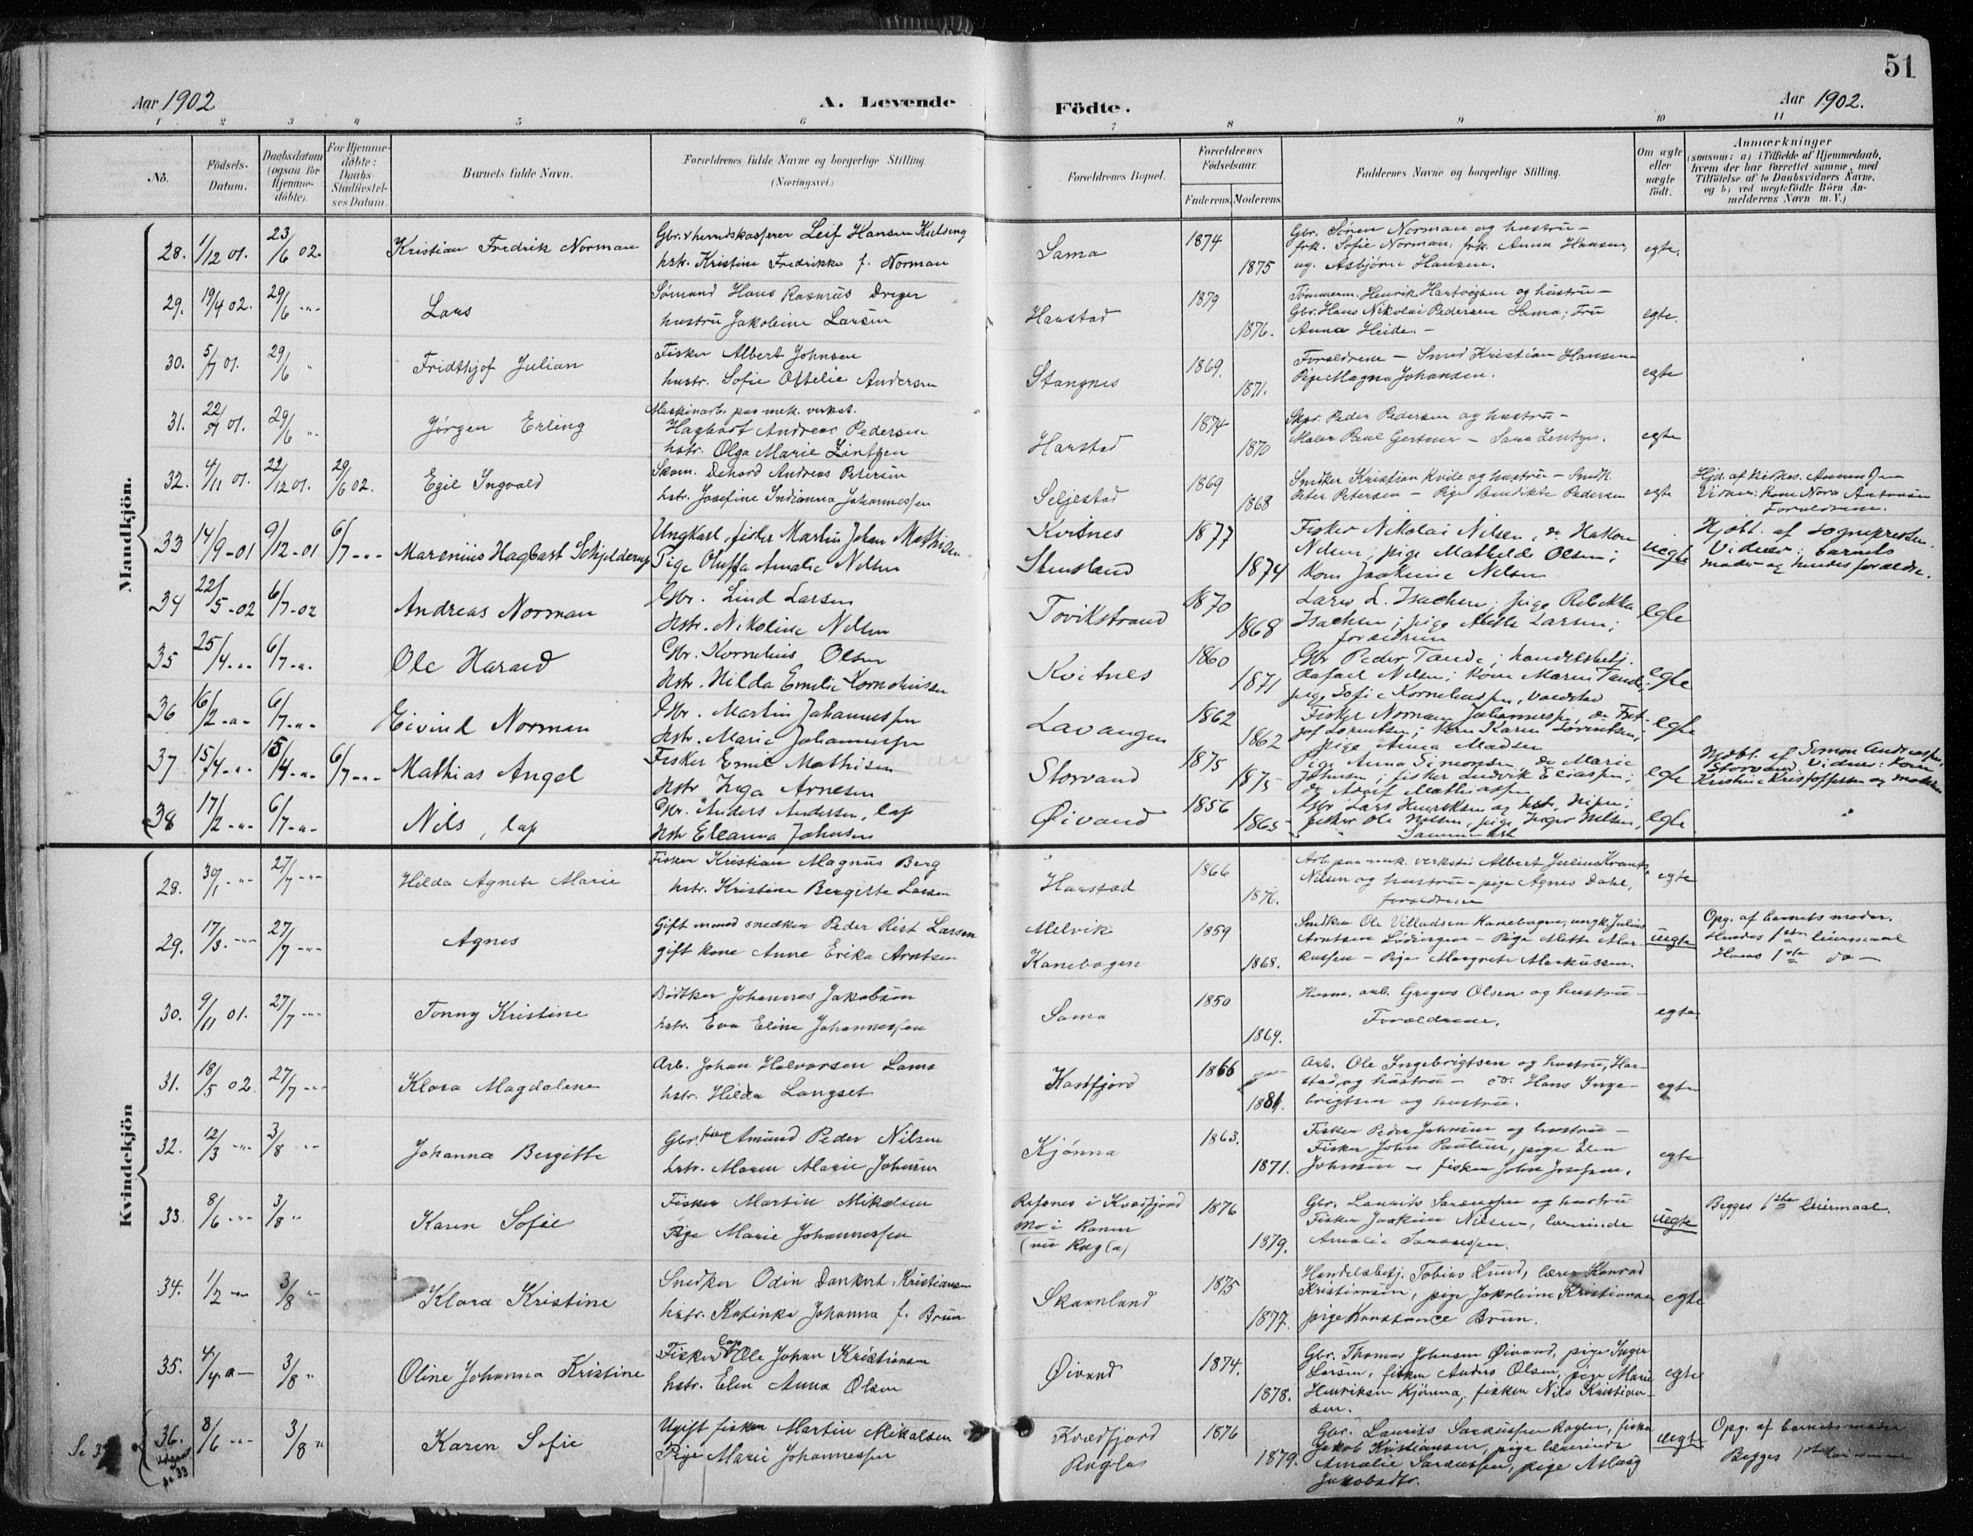 51
Aar 1902
A. Levende
Födte.
Aar 1902.
1 2 3 4 5 6 7 8 9 10 11
No.
Födsels-Datum.
Daabsdatum (ogsaa for Hjemme-döbte).
For Hjemme-döbte: Daabs-Stadfæstel-ses Datum.
Barnets fulde Navn.
Forældrenes fulde Navne og borgerlige Stilling (Næringsvei.)
Forældrenes Bopæl.
Forældrenes Födselsaar.
Faderens. Moderens.
Faddernes Navne og borgerlige Stilling.
Om ægte eller uægte födt.
Anmærkninger
(saasom: a) i Tilfælde af Hjemmedaab,
hvem der har forrettet samme, med
Tilföielse af to Daabsvidners Navne,
og b) ved uægtefödte Börn An-
melderens Navn m. V.)
Mandkjön.
28. 1/12 01. 23/6 02. Kristian Fredrik Norman
Gbr. & herredskasserer Leif Hansen
hstr. Kristine Fredrikke f. Norman
Sama 1874 1875
Gbr. Søren Norman og hustru –
frk. Sofie Norman, frk. Anna Hansen,
og Asbjørn Hansen.
egte.
29. 19/4 02. 29/6 Lars
Sømand Hans Rasmus Dreyer
hustru Jakobine Larsen
Harstad 1879 1876.
Tømmerm. Henrik Hartvigsen og hustru –
Gbr. Hans Nikolai Pedersen Sama; Fru
Anna Heide. –
egte.
30. 5/7 01. 29/6 Fridthjof Julian
Fisker Albert Johnsen
hustr. Sofie Ottelie Andersen
Stangnes 1869. 1871.
Forældrene – Smed Kristian Hansen –
Pige Magna Johansen.
egte
31. 22/7 01. 29/6 Jørgen Erling
Maskinarb. paa mek. verkst.
Hagbart Andreas Pedersen
hstr. Olga Marie Lintzen
Harstad 1874 1870
Skpr. Peder Pedersen og hustru –
Maler Paul Gertner – Sana
egte
32. 4/11 01. 22/12 01. 29/6 02. Egil Ingvald
Skom. Andreas Petersen
hstr. Josefine Indianna Johannessen
Seljestad 1869 1868
Snedker Kristian Kvile og hustru –
Peter Petersen – Pige Bendikte Pedersen
egte
Forældrene.
33 14/9-01 9/12-01 6/7-"- Marenius Hagbart Schjelderup
Ungkarl, fisker Martin Johan Mathisen
Pige Oluffa Amalie Nilsen
Kvitnes
Stensland
1877 1874
Fisker Nikolai Nilsen, do Hakon
Nilsen; pige Mathilde Olsen;
Kone Joakime Nilsen
uegte
Hjdbt. af sognepresten.
Vidner: barnets
moder og hendes forældre.
34 22/5-02 6/7-02 Andreas Norman
Gbr. Lind Larsen
Hstr. Nikoline Nilsen
Tovikstrand 1870 1868
Lares L. Isachsen; pige Rebekka
Isachsen; pige Mette Larsen;
forældrene
egte
35 25/4-"- 6/7-"- Ole Harald
Gbr. Kornelius Olsen
Hstr. Hilda Emelie Korneliusen
Kvitnes 1860 1871
Gbr Peder Tande; handelsbetj.
Rafael Nilsen; kone Maren Tande;
pige Sofie Korneliussen, Voldstad
egte
36 16/2-"- 6/7-"- Eivind Norman
Gbr. Martin Johannessen
Hstr. Marie Johannessen
Lavangen 1862 1862
Fisker Norman Johannessen, do Fret-
jof Lorentsen; Kone Karen Lorentsen;
pige Anna Madsen
egte
37 15/4-"- 15/4-"- 6/7-"- Mathias Angel
Fisker Emel Mathisen
Hstr Inga Arnesen
Storvand 1875 1875
Pige Anna Simonsen, do Marie
Johnsen; fisker Ludvik Eliassen;
do Adolf Mathiassen
egte
Hjdbt. af Simon Andreassen,
Storvand, Vidner: Kone
Kristine Kristoffersen og moderen
38 17/2-"- 6/7-"- Nils, lap
Gbr. Anders Andersen, lap
Hstr Eleanna Johnsen
Øivand 1856 1865
Gbr Lars Henriksen og hst.
fisker Ole Nilsen, pige Inger Nilsen,
egte
Kvindekjön
28. 30/1 27/7 Hilda Agnete Marie
Fisker Kristian Magnus Berg
hstr. Kristine Bergitte Larsen
Harstad 1866 1876.
Arb. paa mek. verksted Albert Julius
Nilsen og hustru – pige Agnes Dahl,
forældrene
egte
29. 17/3. 27/7 Agnes
Gift mand snedker Peder Rist Larsen
gift kone Anne Erika Arntsen
Melvik
Kanebogen
1859 1868.
Snedker Ole Villadsen Kanebogen, ungk. Julius
Arntsen Lødingen – Pige Mette Mar-
kussen – Pige Margrete Markussen.
uegte
Opg. af barnets moder.
Hendes 1ste leiermaal
Hans 1ste do –
30. 9/11 01. 27/7 Tonny Kristine
Bødtker Johannes Jakobsen
hstr. Eva Eline Johannessen
Sama 1850 1864.
Havne arb. Gregus Olsen og hustru –
Forældrene.
egte
31. 18/5 02. 27/7 Klara Magdalena
Arb. Johan Halvorsen Lams
hstr. Hilda Langset
Kasfjord 1866 1881.
Arb. Ole Ingebrigtsen og hustru, Har-
stad, og hustru – do. Hans Inge-
brigtsen og hustru.
egte
32. 12/3 3/8 Johanna Bergitte
Gbr. fisker Amund Peder Nilsen
hstr. Maren Marie Johnsen
Kjønna 1863. 1871.
Fisker Peder Johnsen og hustru –
Fisker John Paulsen, pige Elen
Johnsen – fisker John Josefsen.
egte
33. 8/6 3/8 Karen Sofie
Fisker Martin Mikalsen
Pige Marie Johannessen
Refsnes i Kvædfjord
Mo i Ranen
(nu Rogla)
1876 1879.
Gbr. Laurits Sarassen og hustru
Fisker Joakim Nilsen, lærerinde
Amalie Sarassen.
uegte
Begges 1ste leiermaal.
34. 1/2 3/8 Klara Kristine
Snedker Odin Dankert Kristiansen
hstr. Katinka Johanna f. Brun
Skaanland 1875 1877.
Handelsbetj. Tobias Lund, lærer Konrad
Kristiansen, pige Jakobine Kristiansen
pige Konstance Brun.
egte
35. 4/4 3/8 Oline Johanna Kristine
Fisker lap Ole Johan Kristiansen
hstr. Elen Anna Olsen
Øivand 1874. 1878.
Gbr. Thomas Johnsen Øivand, pige Inger
Larsen, fisker Anders Olsen, pige Marie
Henriksen Kjønna, fisker Nils Kristian-
sen.
egte
36. 8/6 3/8 Karen Sofie
Ugift fisker Martin Mikalsen
Pige Marie Johannessen
Kvædfjord
Rogla
1876 1879.
Gbr. Laurits Sarassen Roglen, fisker
Jakob Kristiansen, pige lærerinde
Amalie Sarassen, pige Aslaug
Jakobsdtr.
uegte
Opg. af barnets moder
Begges 1ste